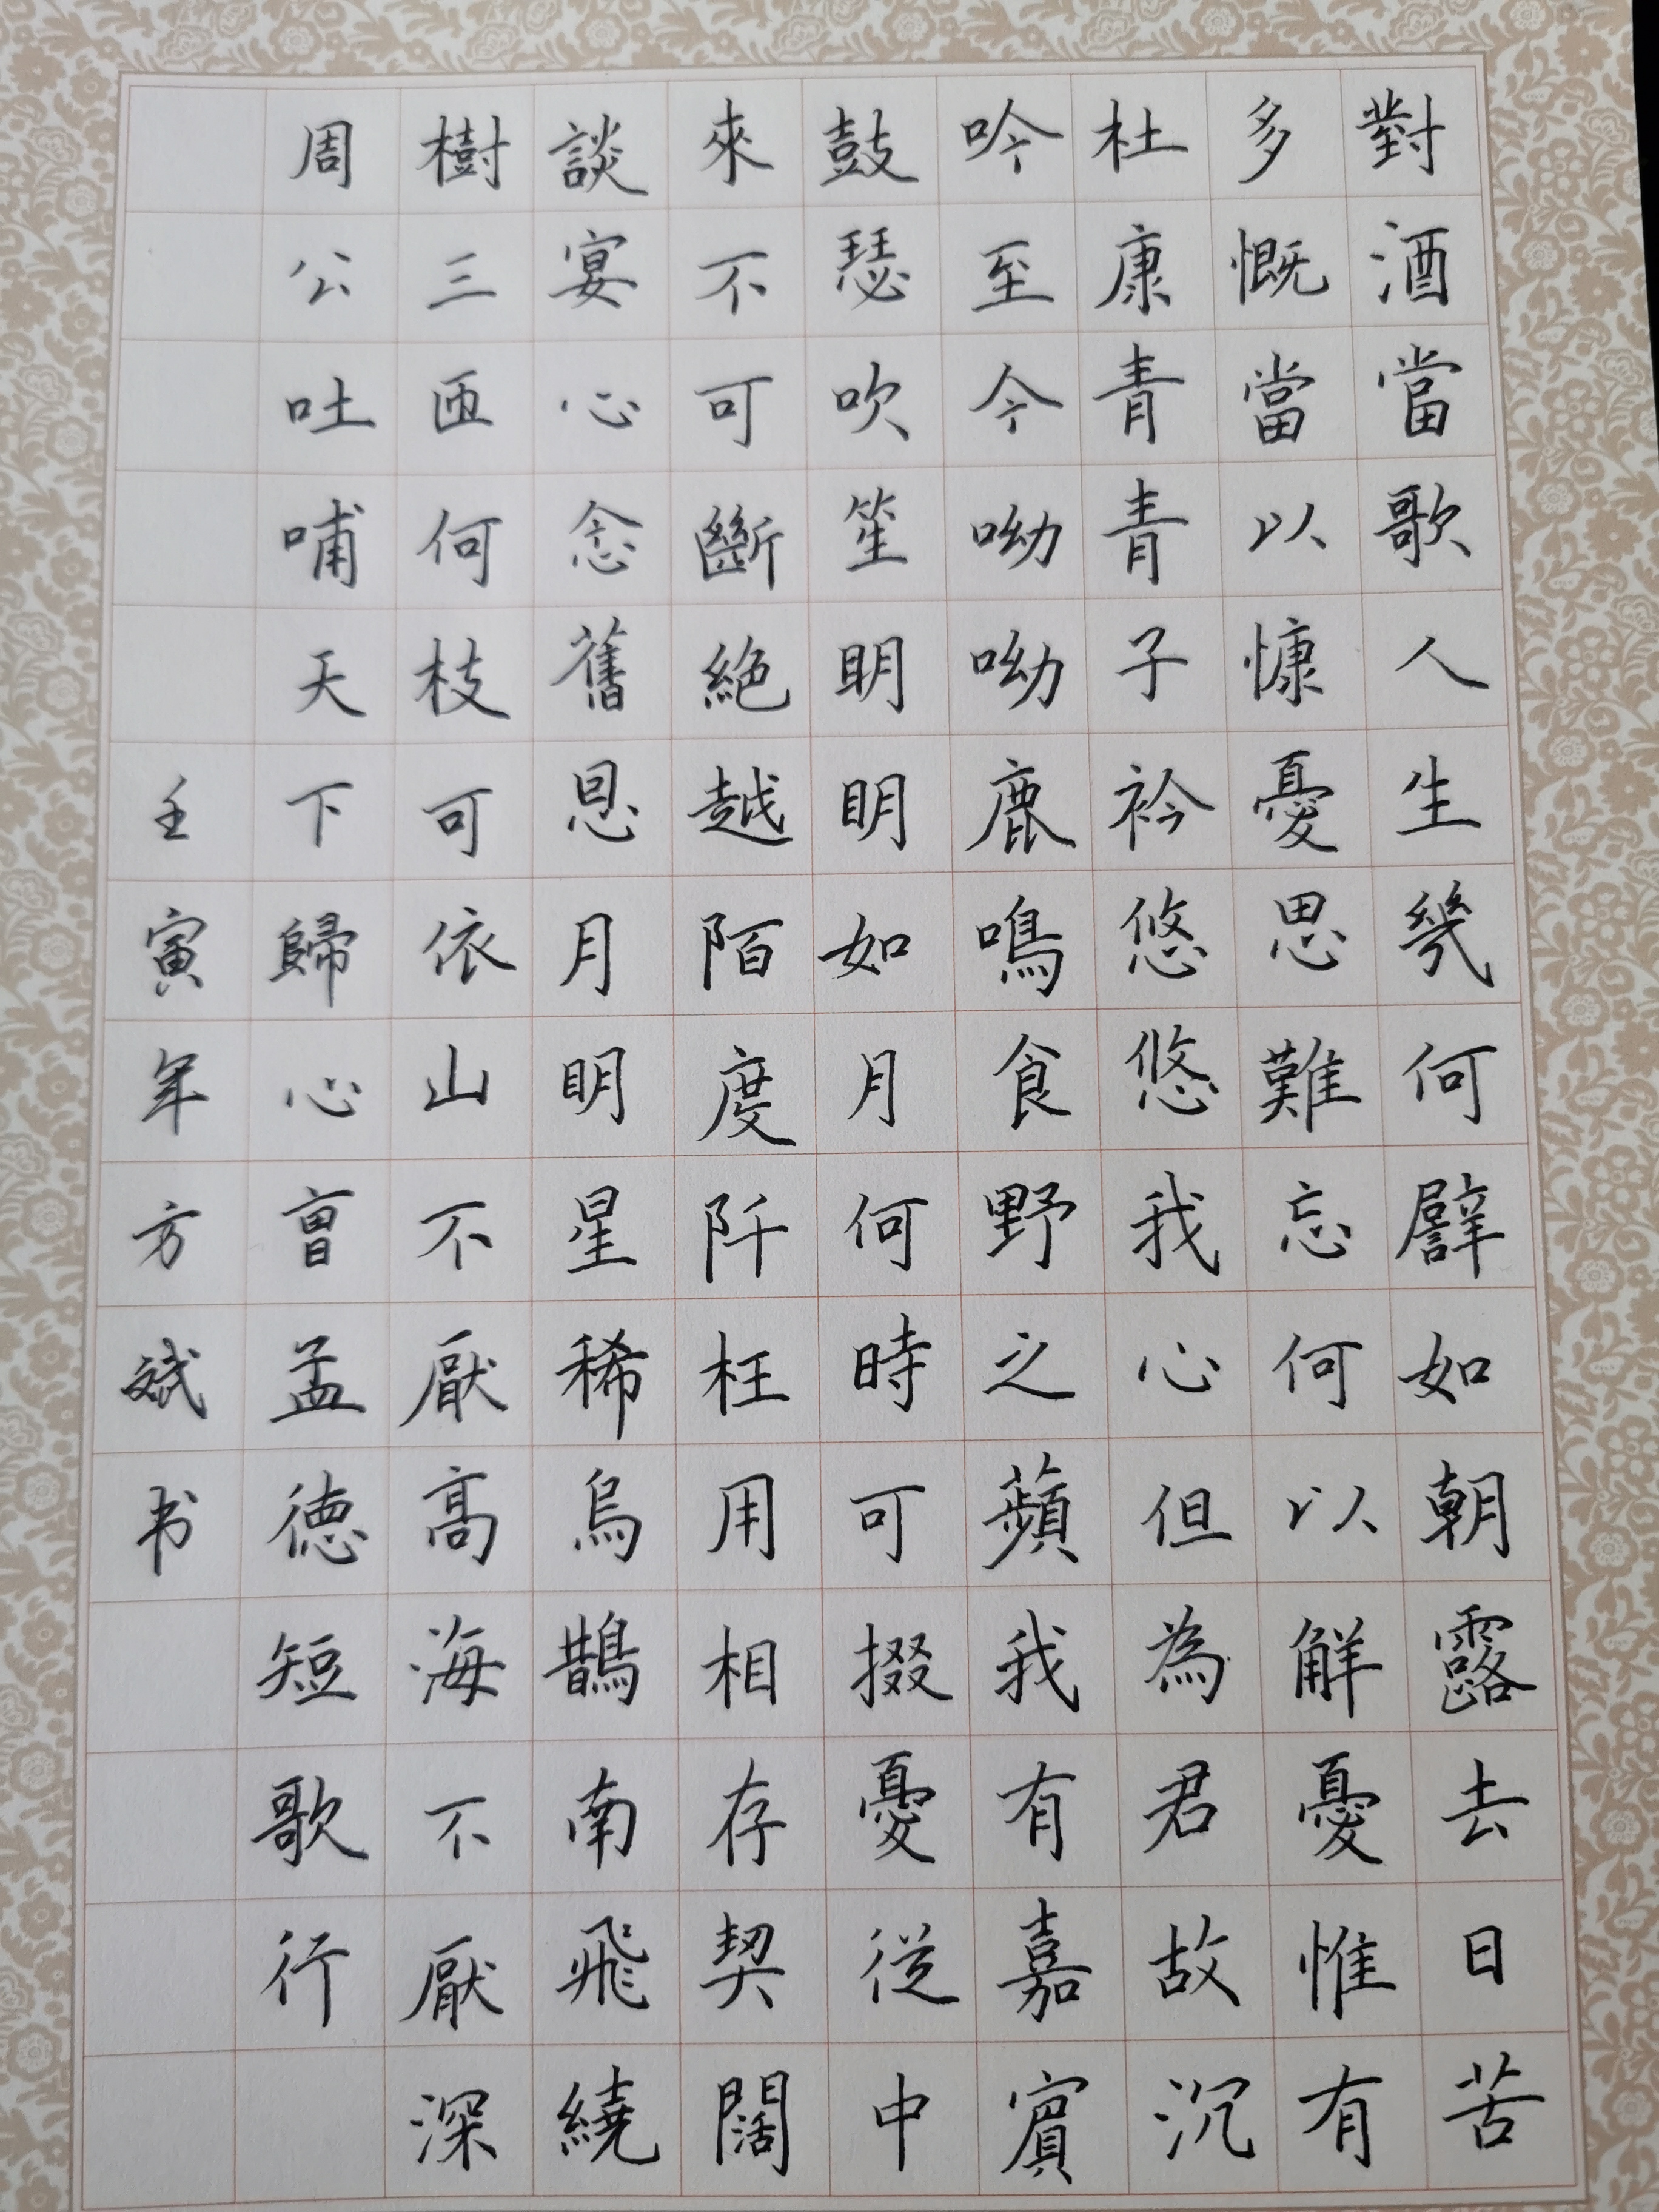 對酒當歌人生幾何譬如朝露去日苦
多慨當以慷憂思難忘何以解憂惟有
杜康青青子衿悠悠我心但為君故沉
吟至今呦呦鹿鳴食野之蘋我有嘉賓
鼓瑟吹笙明明如月何時可掇憂從中
來不可斷絕越陌度阡枉用相存契闊
談宴心念舊恩月明星稀烏鵲南飛繞
樹三匝何枝可依山不厭高海不厭深
周公吐哺天下歸心曹孟德短歌行
壬寅年方斌书